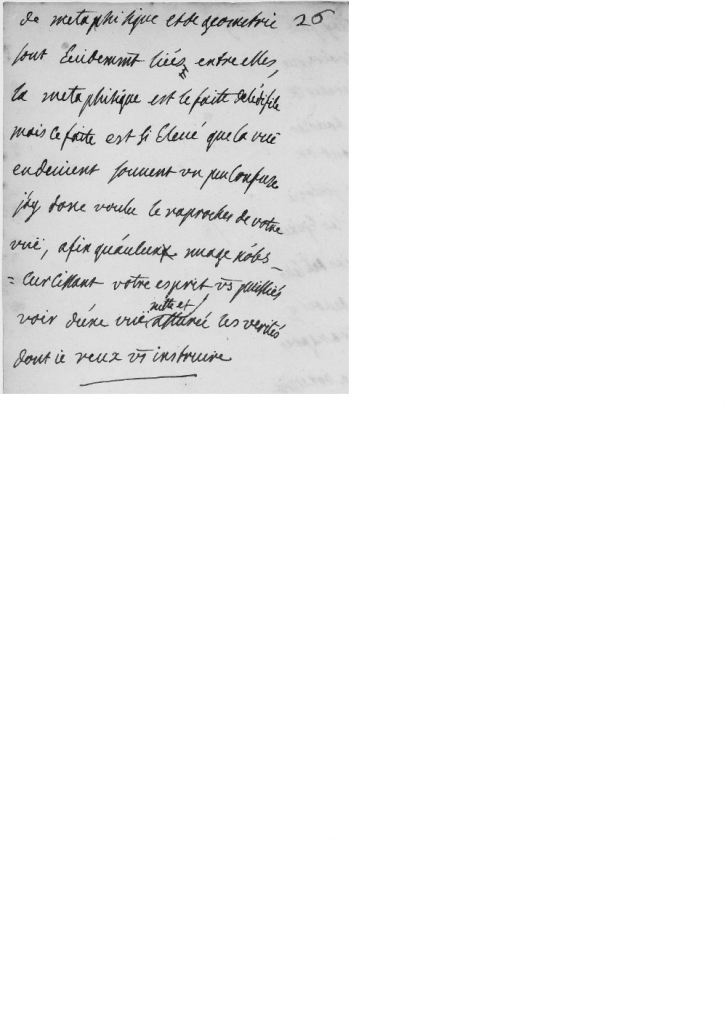 de metaphisique et de geometrie 26
sont Euidemmt liées entre elles,
la metaphisique est le faite de lédifice
mais ce faite est si Eleué que la vuë
en deuient souuent vn peu confuse
jay donc voulu le raprocher de votre
vuë, afin qu'aucun nuage nóbs-
=curcissant votre esprit vs puissiés
nette et
voir d'une vuë assurée les verités
dont ie veux vs instruire